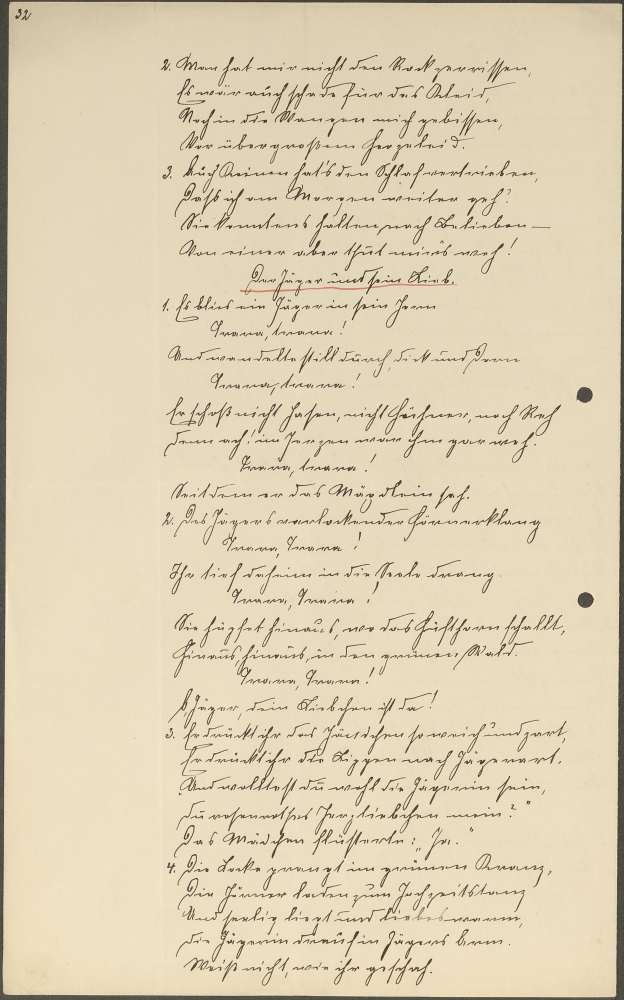 32
2. Man hat mir nicht den Rock zerrissen,
Es wär auch schade für das Kleid,
Noch in die Wangen mich gebissen,
Vor übergroßem Herzeleid.
3. Auch Keinen hat's den Schlaf vertrieben,
Daß ich am Morgen weiter geh?
Sie konntens halten nach Belieben —
Von einer aber thut mirs weh!
Der Jäger und sein Lieb.
1. Es blies ein Jäger in sein Horn
Trara, trara!
Und wandelte still durch dick und Dorn
Trara, trara!
Er schoß nicht Hasen, nicht Hühner, noch Reh
Denn ach! im Herzen war ihm gar weh.
Trara, trara!
Seitdem er das Mägdlein sah.
2. Des Jägers verlockender Hörnerklang
Trara, Trara!
Ihr tief daheim in die Seele drang.
Trara, Trara!
Sie hüpfet hinaus, wo das Hüfthorn schallt,
Hinaus, hinaus, in den grünen Wald.
Trara, Trara!
O Jäger, dein Liebchen ist da!
3. Er drückt ihr das Händchen so weich und zart,
Er drückt ihr die Lippen nach Jägerart.
Und wolltest du wohl die Jägerin sein,
Du rosenrothes Herzliebchen mein?"
Das Mädchen flüsterte: „Ja."
4. Die Locke prangt im grünen Kranz,
Die Hörner laden zum Hochzeitstanz
Und seelig liegt und liebeswarm,
Die Jägerin drauf in Jägers Arm.
Weiß nicht, wie ihr geschah.